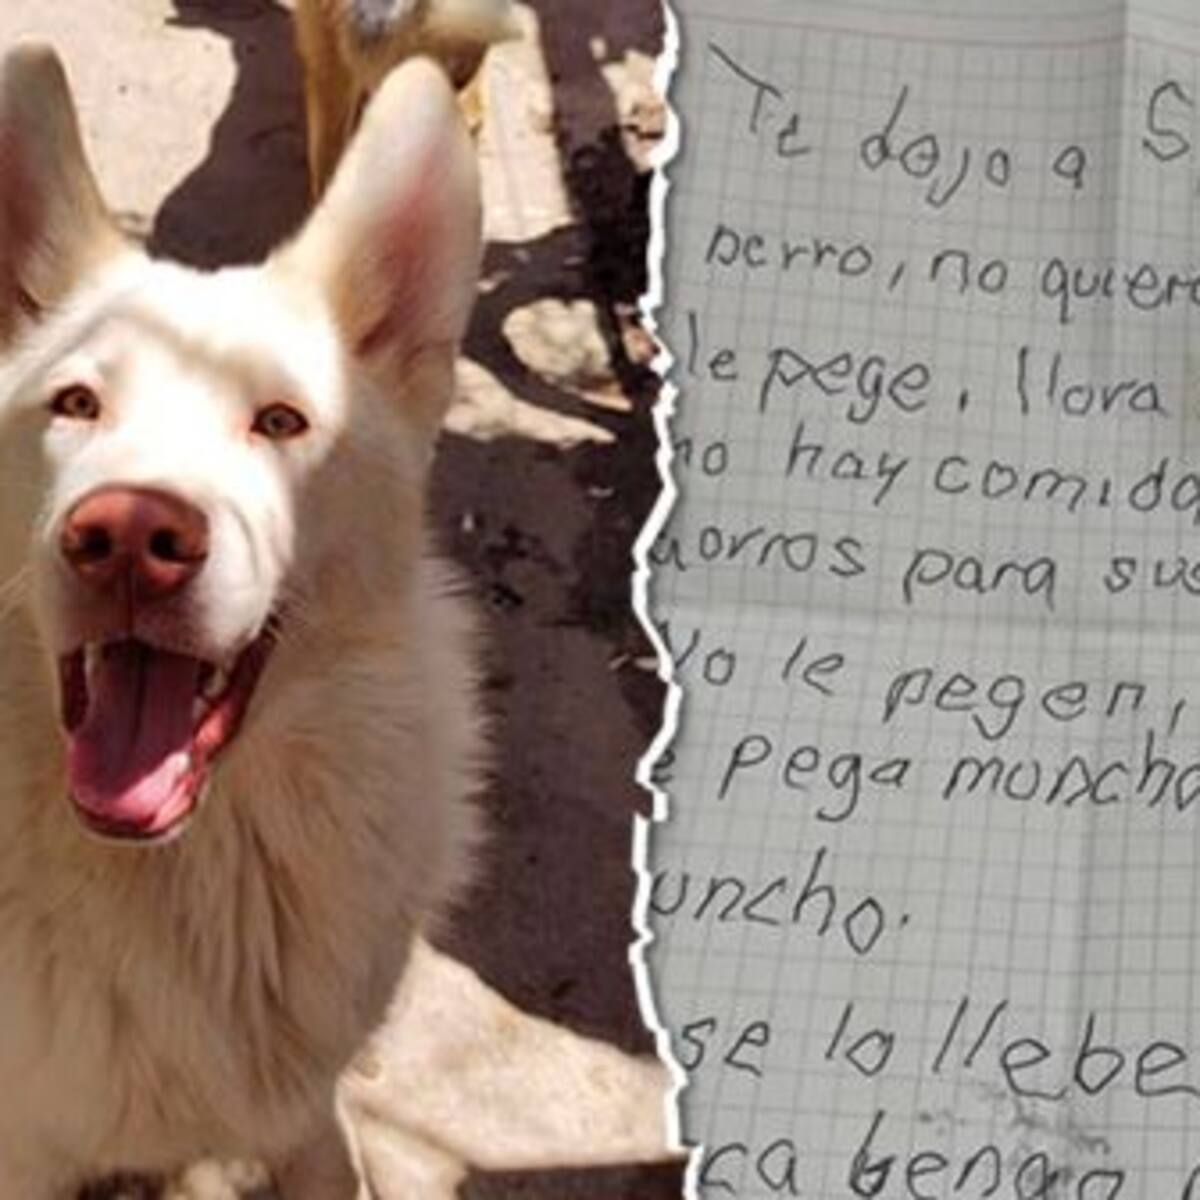 Te dojo a S
perro, no quiero
le pege, llora
no hay comida
horros para sus
No le pegen,
e pega muncho
uncho.
se lo llebe
ca bengan